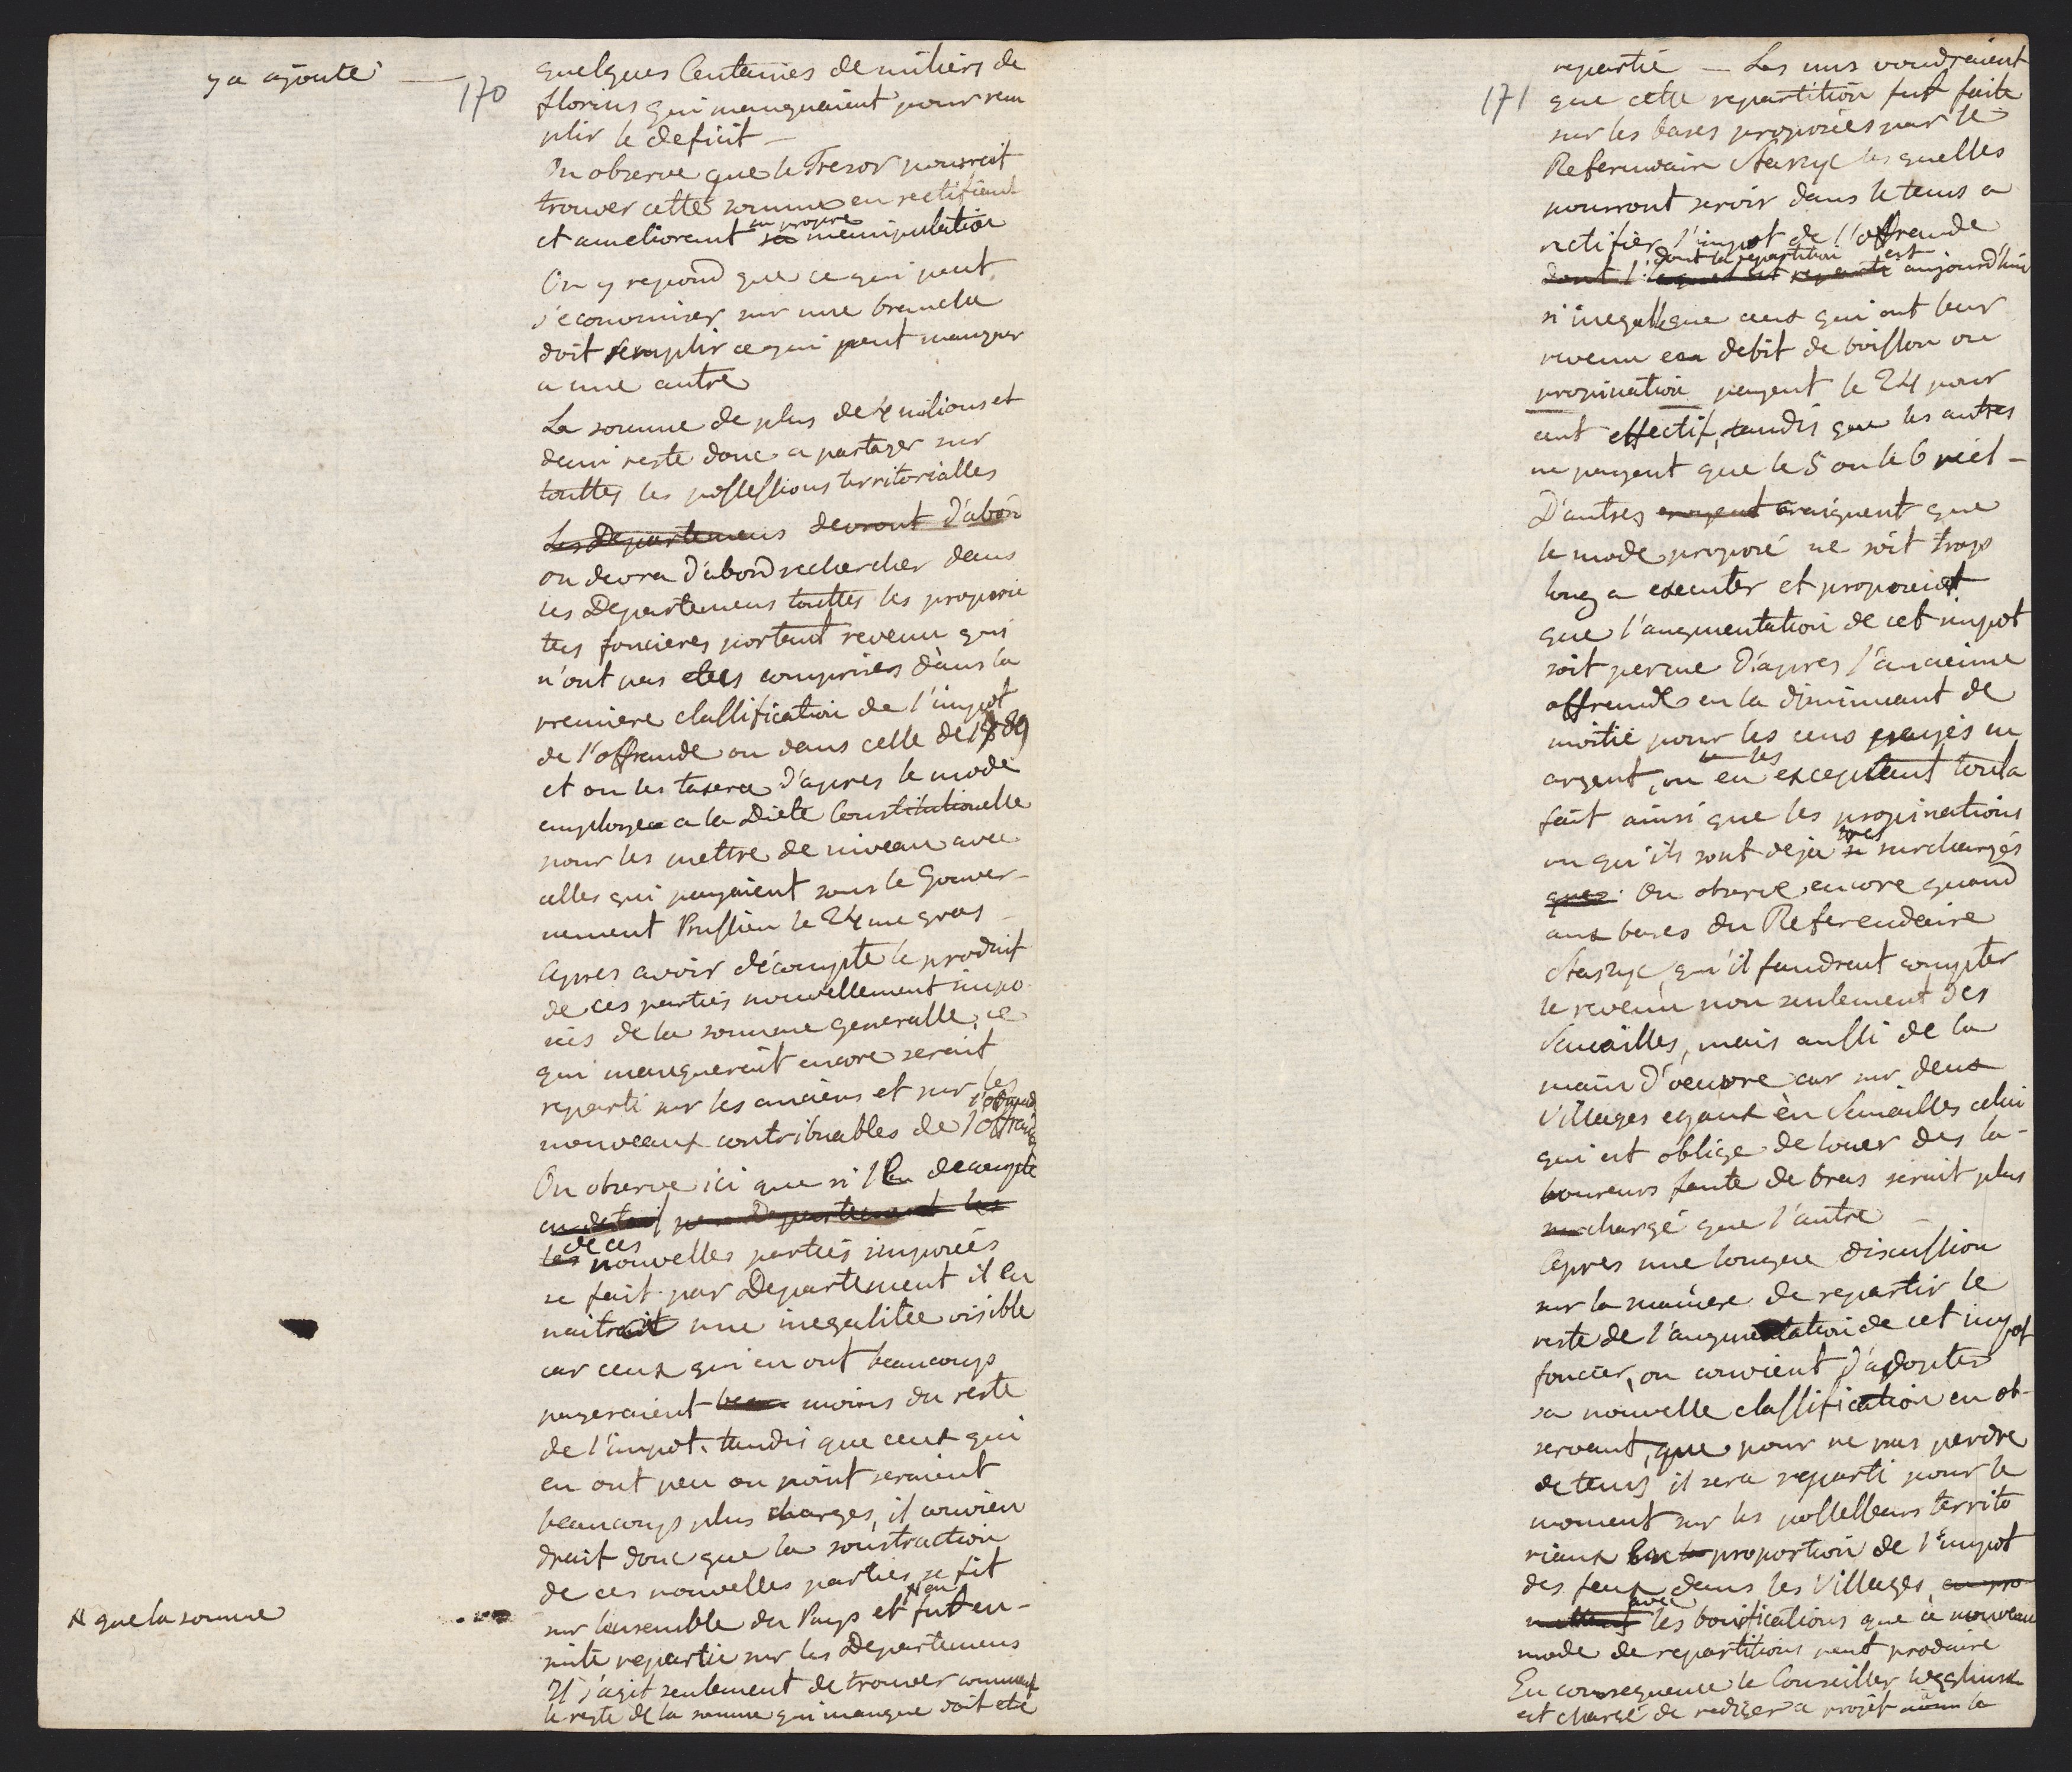 y a ajouté —
170
quelques Centaines de milliers de
florins qui manquaient pour rem
plir le deficit —
On observe que le Tresor pourroit
trouver cette somme en rectifiant
et ameliorant sa propre manipulation
On y repond que ce qui peut
s'economiser sur une branche
doit remplir ce qui peut manquer
a une autre
La somme de plus de 4 milions et
demi reste donc a partager sur
touttes les possessions territorialles
Les Departemens devront d'abor
on devra d'abord rechercher dans
les Departemens touttes les proprie
tes foncieres portant revenu qui
n'ont pas etes comprises dans la
premiere classification de l'impot
de l'offrande ou dans celle de 1789
et on les taxera d'apres le mode
employee a la Diete Constitutionelle
pour les mettre de niveau avec
celles qui payaient sous le Gouver-
nement Prussien le 24 me gros —
Apres avoir décompté le produit
de ces parties nouvellement impo
sées de la somme generalle, ce
qui manquerait encore serait
reparti sur les anciens et sur les
nouveaux contribuables de l'offrande
On observe ici que si l'on decompte
en detail par Departement les
les de ces nouvelles parties imposées
se fait par Departement il en
naitrait une inegalitée visible
car ceux qui en ont beaucoup
payeraient beau moins du reste
de l'impot. tandis que ceux qui
en ont peu ou point seraient
beaucoup plus charges, il convien
drait donc que la soustraction
de ces nouvelles parties se fit
sur l'ensemble du Pays et # fut en-
suite repartie sur les Departemens
# que la somme
Il s'agit seulement de trouver comment
le reste de la somme qui manque doit etre
171
repartie — Les uns voudraient
que cette repartition fut faite
sur les bases proposées par le
Referendaire Staszyc les quelles
pourront servir dans le tems a
rectifier l'impot de l'offrande
dont la repartition est aujourd'hui
si inegalle que ceux qui ont leur
revenu en debit de boisson ou
propination payent le 24 pour
cent effectif, tandis que les autres
ne payent que le 5 ou le 6 réel —
D'autres craignent que
le mode proposé ne soit trop
long a executer et proposient
que l'augmentation de cet impot
soit percue d'apres l'ancienne
offrande en la diminuant de
moitié pour les cens payés en
argent, ou en les exceptant tout a
fait ainsi que les propinations
vu qu'ils sont deja tres surchargés
On observe encore quand
aux bases du Referendaire
Staszyc, qu'il faudrait compter
le revenu non seulement des
Semailles, mais aussi de la
main d'oeuvre car sur deux
Villages egaux en Semailles celui
qui est obligé de louer des la-
boureurs faute de bras serait plus
surchargé que l'autre —
Apres une longue discussion
sur la maniere de repartir le
reste de l'augmentation de cet impot
foncier, on convient d'adopter
sa nouvelle classification en ob-
servant, que pour ne pas perdre
de tems il sera reparti pour le
moment sur les possesseurs territo
riaux proportion de l'impot
des feux dans les Villages
avec les bonifications que ce nouveau
mode de repartitions peut produire
En consequence le Conseiller Węgliński
est chargé de rediger ce projet